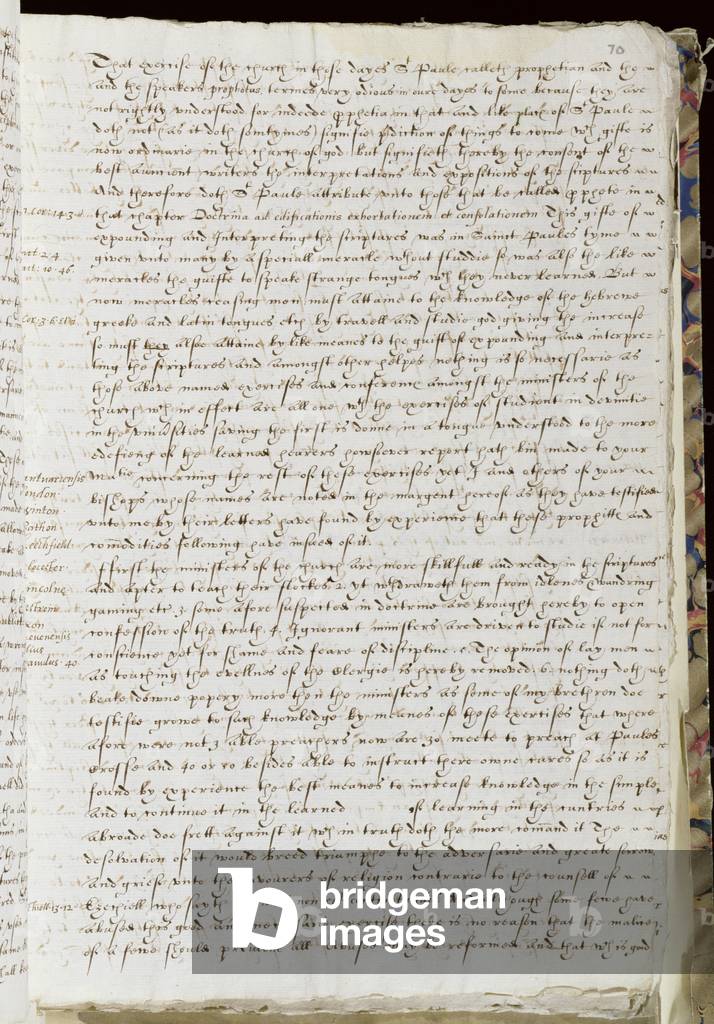 70
That exercise of the church in those dayes St Paule calleth prophetian and the
and the speakers prophetas, termes very odious in oure dayes to some because they are
not rightly understood for indeede pphetia in that and like places of St Paule
doth not (as it doth somtymes) signifie pdiction of things to come wch gifte is
now ordinarie in the church of god but signifieth thereby the consent of the
best auncient writers the interpretations and expositions of the scriptures
And therefore doth St Paule attribute unto those that be called pphetæ in
1. Cor: 14. 3
that chapter Doctrina ad edificationis exhortationem et consolationem This gifte of
expounding and Interpreting the scriptures was in Sainct Paules tyme
act 2. 4
given unto many by a speciall meracle wthout studdie so was also the like
act: 10. 46.
meracles the guifte to speake strange tongues wch they never learned. But
now meracles ceasing men must attaine to the knowledge of the hebrewe
Cor. 3. 6.
greeke and latin tongues etc by travell and studie god giving the increase
so must they allso attaine by like meanes to the guift of expounding and interpre-
ting the scriptures and amongst other helpes nothing is so necessarie as
those above named exercises and conference amongst the ministers of the
church wch in effect are all one wth the exercises of studient in devinitie
in the universities saving the first is donne in a tongue understood to the more
edefieng of the learned hearers howsoever report hath bin made to your
Matie concerning the rest of these exercises yet I and others of your
bishops whose names are noted in the margent hereof as they have testified
unto me by their letters have found by experience that these prophitte and
comodities following have insued of it.
ffirst the ministers of the church are more skillfull and ready in the scriptures
and apter to teach their flockes 2. yt wthdraweth them from idlenes wandring
gaming etc 3. some afore suspected in doctrine are brought hereby to open
confession of the truth. 4. Ignorant ministers are driven to studie if not for
conscience yet for shame and feare of discipline. 5. The opinion of lay men
as touching the evellnes of the Clergie is hereby removed 6. nothing doth
beate downe popery more then the ministers as some of my brethren doe
testifie growe to such knowledge by meanes of those exercises that where
afore were not 3 able preachers now are 30 meete to preach at Paules
Crosse and 40 or 50 besides able to instruct there owne cures so as it is
found by experience the best meanes to increase knowledge in the simple
and to continue it in the learned of learning in the cuntries
abroade doe frett against it wch in truth doth the more comend it The
desolvation of it would breed triumphe to the adversarie and greate sorow
and griefe unto the favourers of religion contrarie to the counsell of
Ezechiell who sayth though some fewe have
abused this good and exercise there is no reason that the malice
of a fewe should all abuses may be reformed and that wch is god
b bridgeman
images